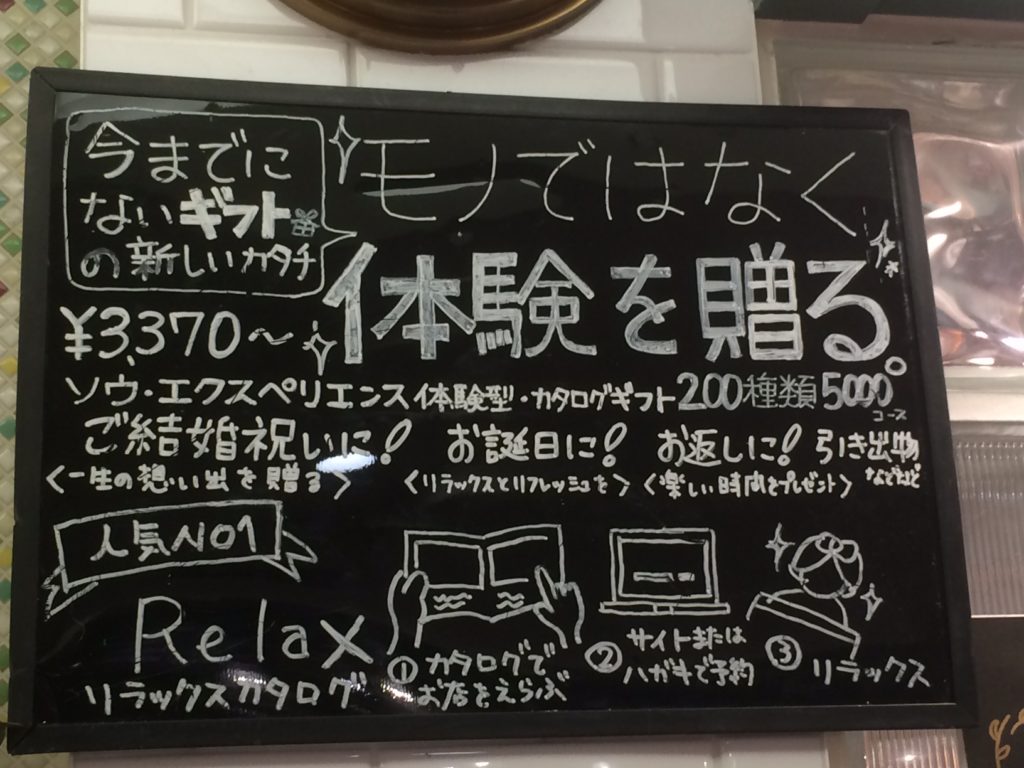 今までに
ないギフト
の新しいカタチ
モノではなく
体験を贈る。
¥3,370〜
ソウ・エクスペリエンス体験型・カタログギフト200種類5000コース
ご結婚祝いに! お誕生日に! お返しに! 引き出物などなど
<一生の想い出を贈る> <リラックスとリフレッシュを> <楽しい時間をプレゼント>
人気NO1
Relax
リラックスカタログ
① カタログで
お店をえらぶ
② サイトまたは
ハガキで予約
③ リラックス